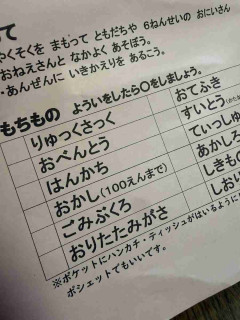 って
やくそくを まもって ともだちや 6ねんせいの おにいさん
おねえさんと なかよく あそぼう。
・あんぜんに いきかえりを あるこう。
もちもの よういをしたら○をしましょう。
りゅっくさっく
おてふき
おべんとう
すいとう
はんかち
てぃっしゅ
おかし(100えんまで)
あかしろ
ごみぶくろ
しきもの
おりたたみがさ
しおり
※ポケットにハンカチ・ティッシュがはいるように
ポシェットでもいいです。